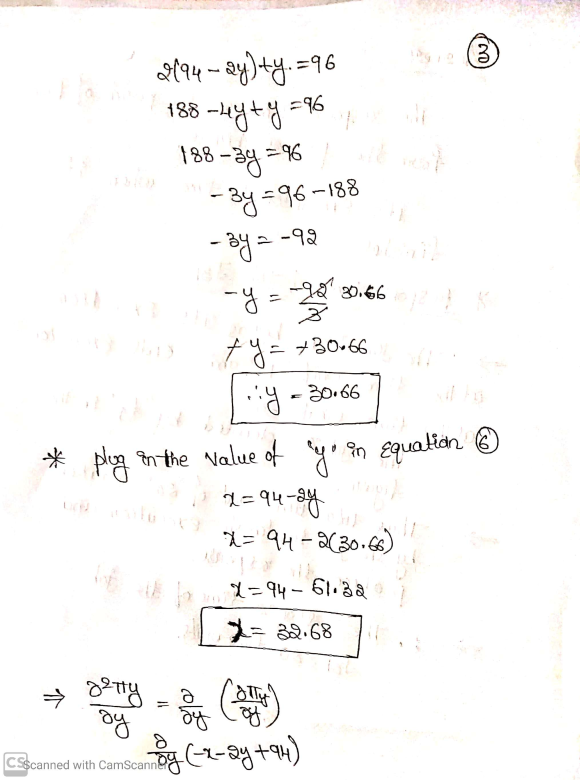 ③
2(94 - 2y) + y. = 96
188 - 4y + y = 96
188 - 3y = 96
- 3y = 96 - 188
- 3y = -92
-y = -92/3 30.66
+y = +30.66
∴ y = 30.66
* plug in the value of "y" in equation ⑥
x = 94 - 2y
x = 94 - 2(30.66)
x = 94 - 61.32
x = 32.68
⇒ ∂²πy/∂y = ∂/∂y (∂πy/∂y)
∂/∂y (-x - 2y + 94)
CS Scanned with CamScanner